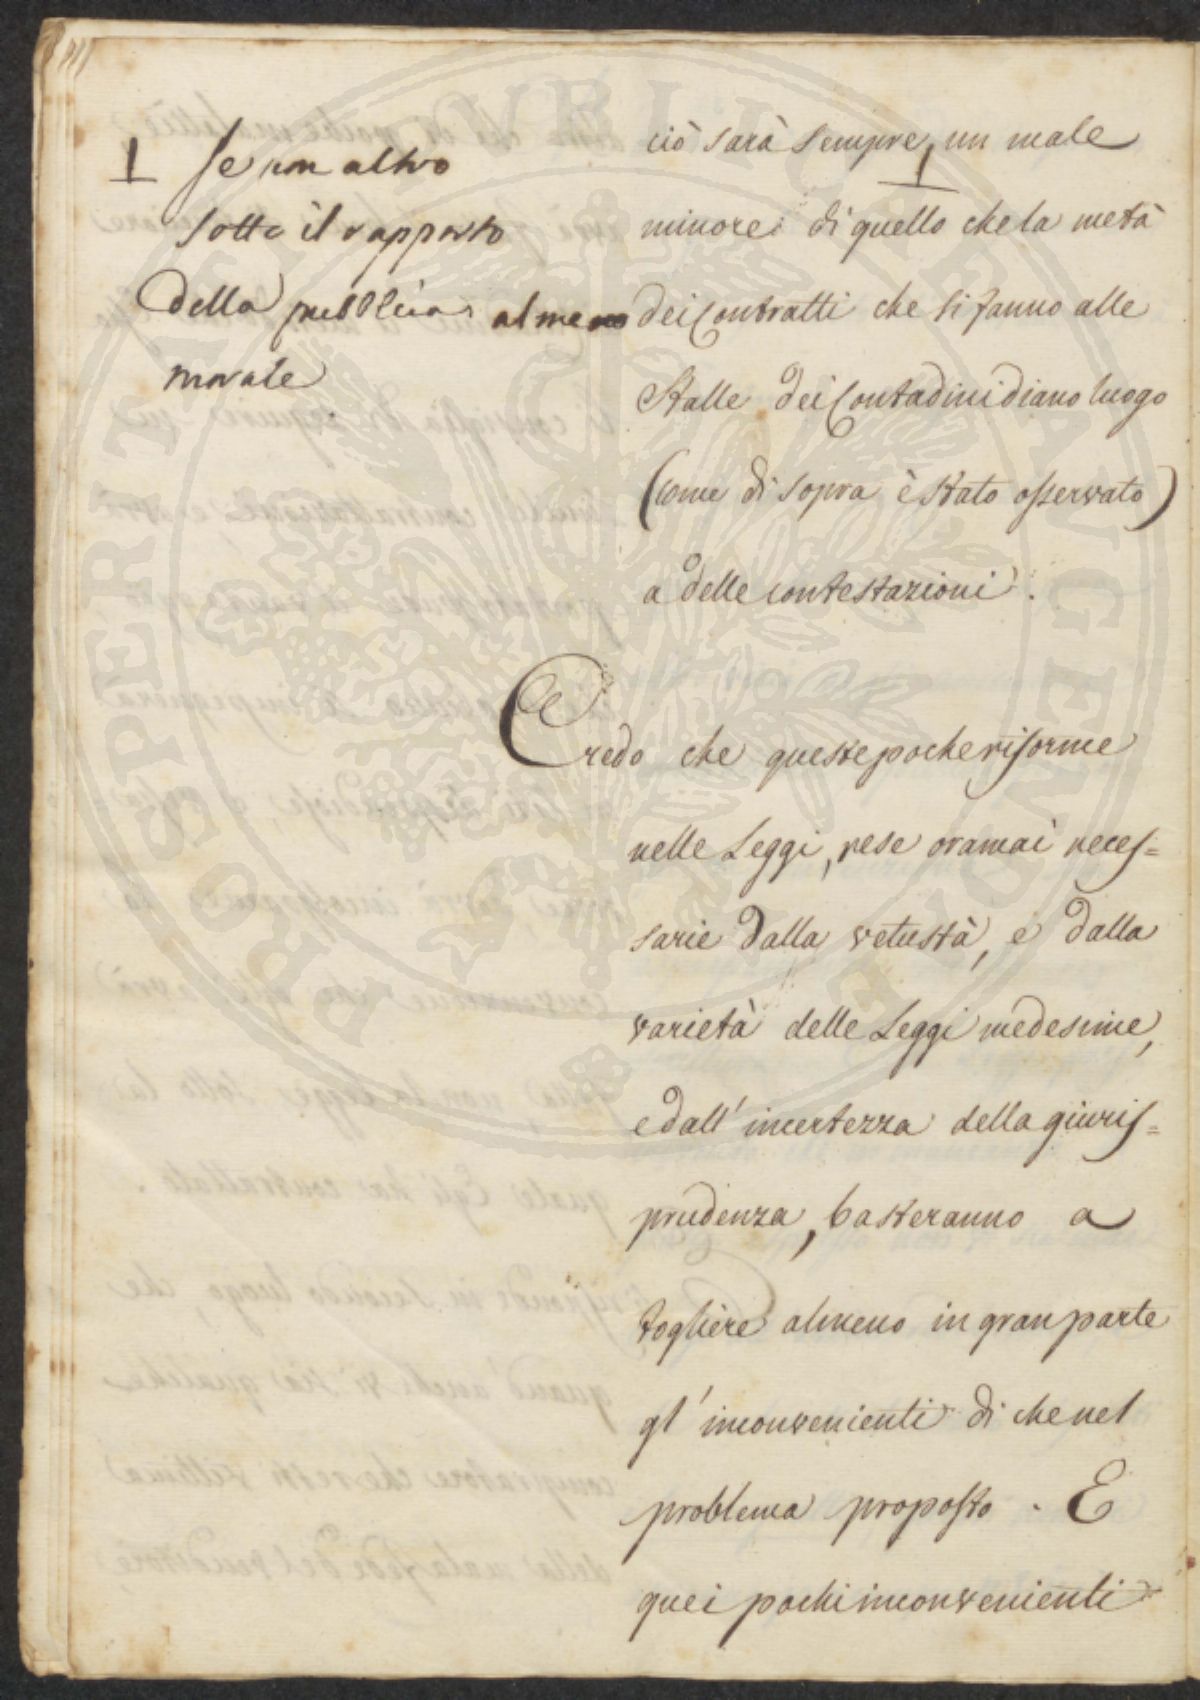 Se non altro
sotto il rapporto
della pubblica almeno
morale
ciò sarà sempre un male
minore di quello che la metà
dei Contratti che si fanno alle
Stalle dei Contadini diano luogo
(come di sopra è stato osservato)
a delle contestazioni.
Credo che queste poche riforme
nelle Leggi, rese oramai neces=
sarie dalla vetustà, e dalla
varietà delle Leggi medesime,
e dall' incertezza della giuris=
prudenza, basteranno a
togliere almeno in gran parte
gl' inconvenienti di che nel
problema proposto. E
quei pochi inconvenienti
PROSPERITATI PUBLICAE AUGENDAE